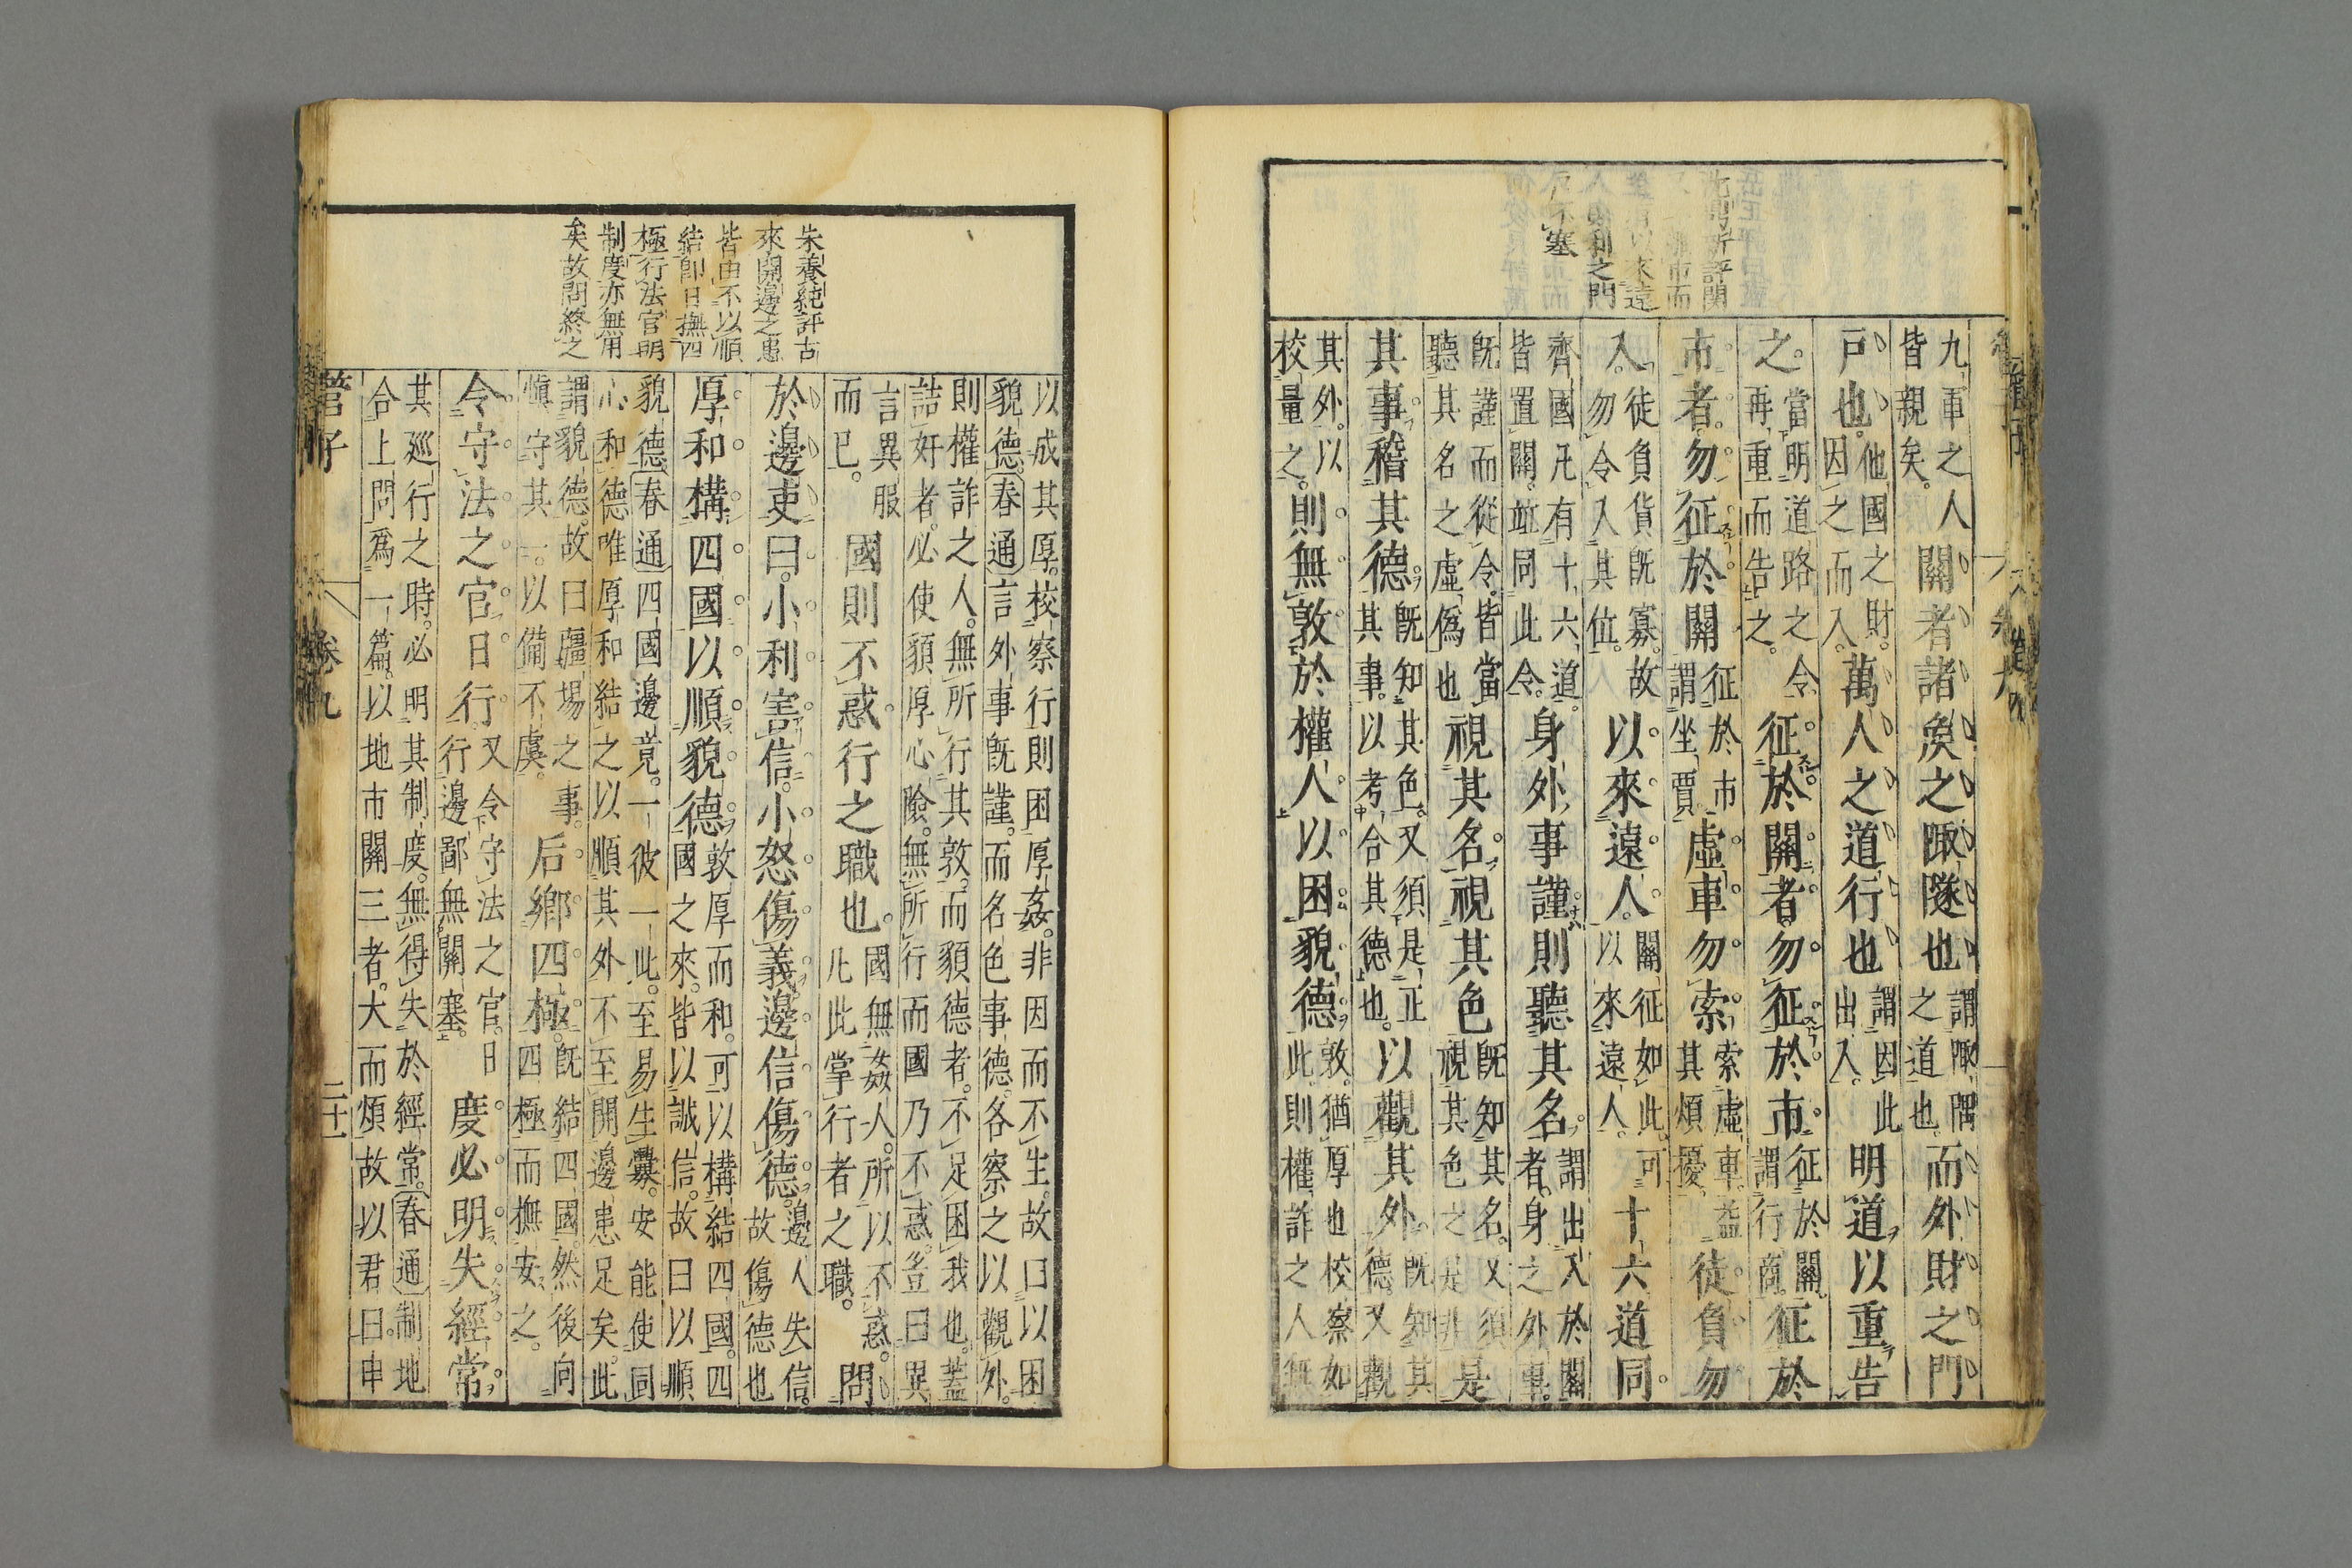 九軍之人
皆親矣。
關者諸矦之陬隧也
謂陬隅
之道也
而外財之門
戸也。
他國之財。
因之而入。
萬人之道行也
謂因此
出入。
明道以重告
之。
當明道路之令
再重而告之。
征於關者。勿征於市。
征於關
謂行商
征於
市者。勿征於關
征於市
謂坐賈
虛車勿索。
索虛車益
其煩擾
徒負勿
入。
徒負貨旣寡。故
勿令入其位
以來遠人。
關征如此可
以來遠人。
十六道同。
齊國凡有十六道。
皆置關。竝同此令。
身外事謹。則聽其名。
謂出入於關
者。身之外事。
旣謹而從令。皆當
聽其名之虛偽也
視其名。視其色
旣知其名。又須
視其色之是非
是
其事。稽其德。
旣知其色。又須是正
其事。以考合其德也。
以觀其外。
旣知其
德。又觀
其外。以
校量之。
則無敦於權人。以困貌德。
敦。猶厚也校察如
此。則權詐之人無
以成其厚。校察行則困厚姦。非因而不生。故曰以困
貌德。春通言外事旣謹。而名色事德。各察之以觀外。
則權詐之人。無所行其敦。而貌德者。不足困我也。蓋
詰好者。必使貌厚心險。無所行而國乃不惑。豈曰異
言異服
而已。
國則不惑。行之職也。
國無姦人。所以不惑。
凡此掌行者之職。
問
於邊吏曰。小利害信。小怒傷義。邊信傷德。
邊人失信。
故傷德也
厚和構四國以順貌德。
敦厚而和。可以構結四國。四
國之來。皆以誠信。故曰以順
貌德春通四國邊竟。一彼一此。至易生釁。安能使同
心和德唯厚和結之以順其外。不至開邊患足矣。此
謂貌德。故曰疆場之事。
愼守其一。以備不虞。
后鄉四極。
旣結四國。然後向
四極而撫安之。
令守法之官日行。
又令守法之官。日
行邊鄙。無關塞。
度必明。失經常。
其巡行之時。必明其制度。無得失於經常。春通制地
合上問爲一篇。以地市關三者。大而煩故以君曰。申
管子
卷九
二十一
朱養純評古
來開邊之患
皆由不以順
結卽日撫四
極行法官明
制度亦無用
矣故問終之